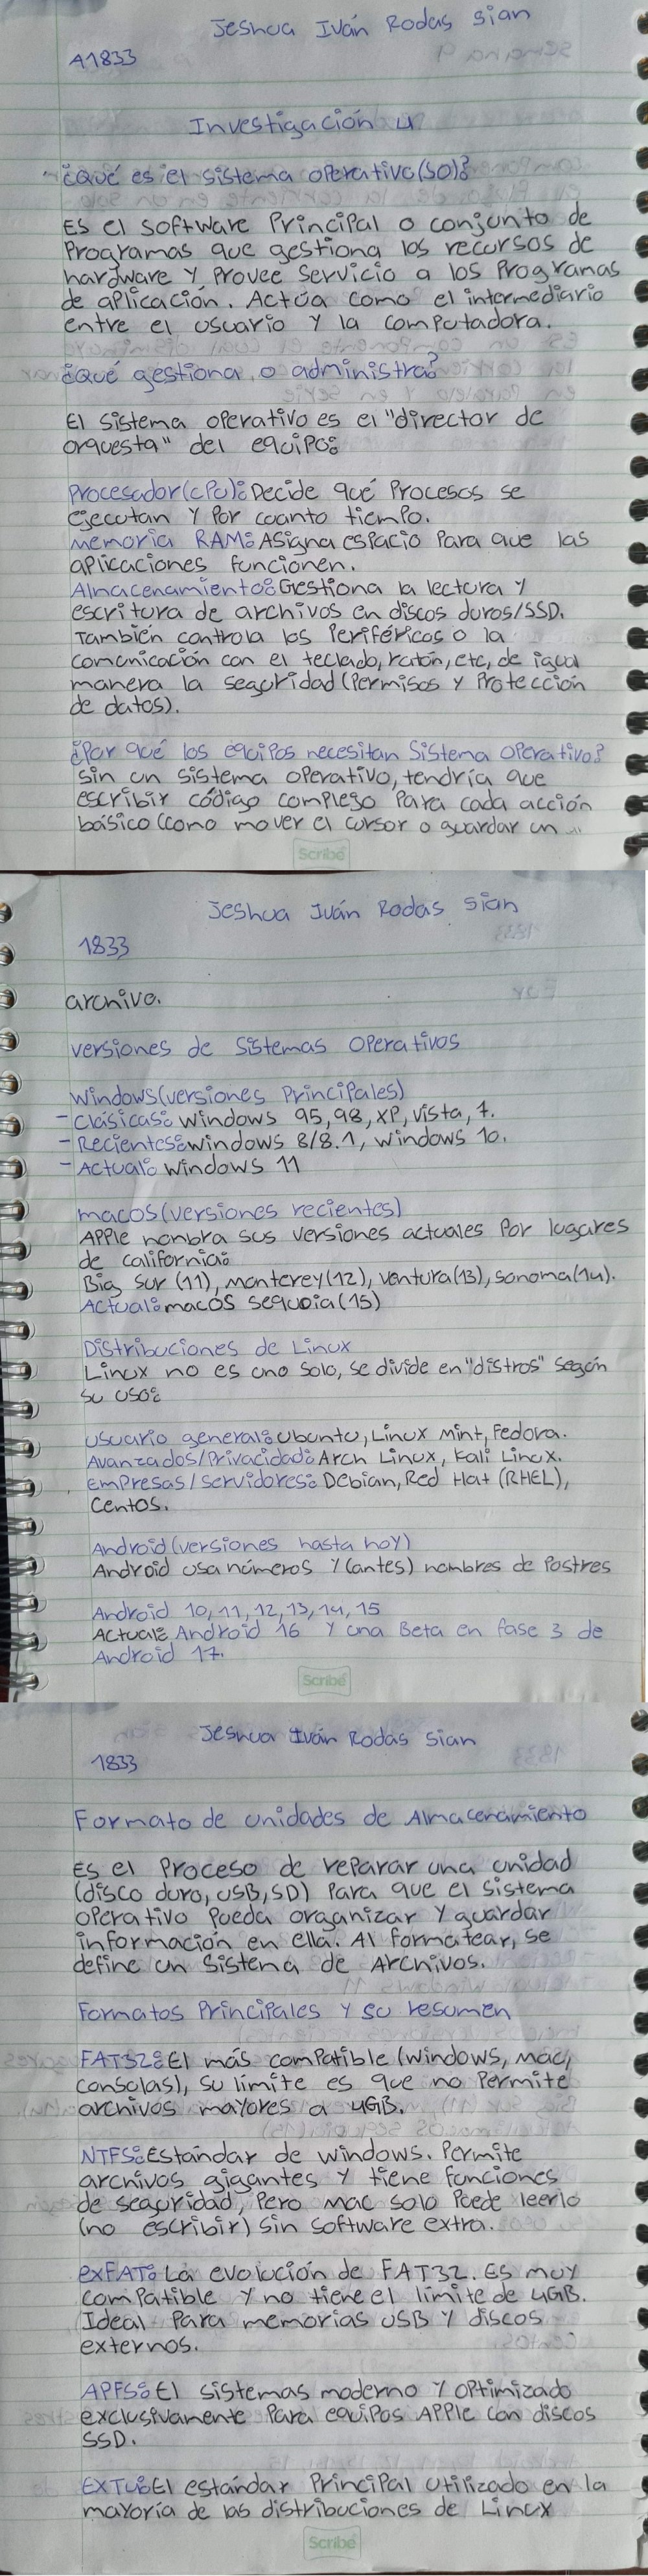 Jeshua Iván Rodas Sian
A1833
Investigación 4
¿Qué es el sistema operativo(SO)?
Es el software Principal o conjunto de
Programas que gestiona los recursos de
hardware y Provee Servicio a los Programas
de aplicación. Actúa como el intermediario
entre el usuario y la computadora.
¿Qué gestiona o administra?
El sistema operativo es el "director de
orquesta" del equipo:
Procesador(CPU): Decide qué Procesos se
ejecutan y Por cuanto tiempo.
Memoria RAM: Asigna espacio Para que las
aplicaciones funcionen.
Almacenamiento: Gestiona la lectura y
escritura de archivos en discos duros/SSD.
También controla los Periféricos o la
comunicación con el teclado, ratón, etc, de igual
manera la seguridad (Permisos y Protección
de datos).
¿Por qué los equipos necesitan Sistema Operativo?
Sin un sistema operativo, tendría que
escribir código complejo Para cada acción
básico (como mover el cursor o guardar un
Scribe
Jeshua Iván Rodas Sian
1833
archivo.
Versiones de Sistemas Operativos
Windows(versiones Principales)
- Clásicas: Windows 95, 98, XP, Vista, 7.
- Recientes: windows 8/8.1, windows 10.
- Actual: Windows 11
macOS(versiones recientes)
APPle nombra sus versiones actuales Por lugares
de california:
Big Sur (11), Monterey(12), Ventura(13), Sonoma(14).
Actual: macOS Sequoia(15)
Distribuciones de Linux
Linux no es uno solo, se divide en "distros" según
su uso:
Usuario general: Ubuntu, Linux Mint, Fedora.
Avanzados/Privacidad: Arch Linux, Kali Linux.
Empresas/servidores: Debian, Red Hat (RHEL),
CentOS.
Android(versiones hasta hoy)
Android usa números y (antes) nombres de Postres
Android 10, 11, 12, 13, 14, 15
Actual: Android 16 y una Beta en fase 3 de
Android 17.
Scribe
Jeshua Iván Rodas Sian
1833
Formato de unidades de Almacenamiento
Es el Proceso de reparar una unidad
(disco duro, USB, SD) Para que el sistema
operativo Pueda organizar y guardar
información en ella. Al formatear, se
define un Sistema de Archivos.
Formatos Principales y su resumen
FAT32: El más compatible (windows, Mac,
consolas), su límite es que no Permite
archivos mayores a 4GB.
NTFS: Estándar de windows. Permite
archivos gigantes y tiene funciones
de seguridad, Pero Mac solo Puede leerlo
(no escribir) sin software extra.
exFAT: La evolución de FAT32. Es muy
compatible y no tiene el límite de 4GB.
Ideal Para memorias USB y discos
externos.
APFS: El sistemas moderno y optimizado
exclusivamente Para equipos APPle con discos
SSD.
EXT4: El estándar Principal utilizado en la
mayoría de las distribuciones de Linux
Scribe